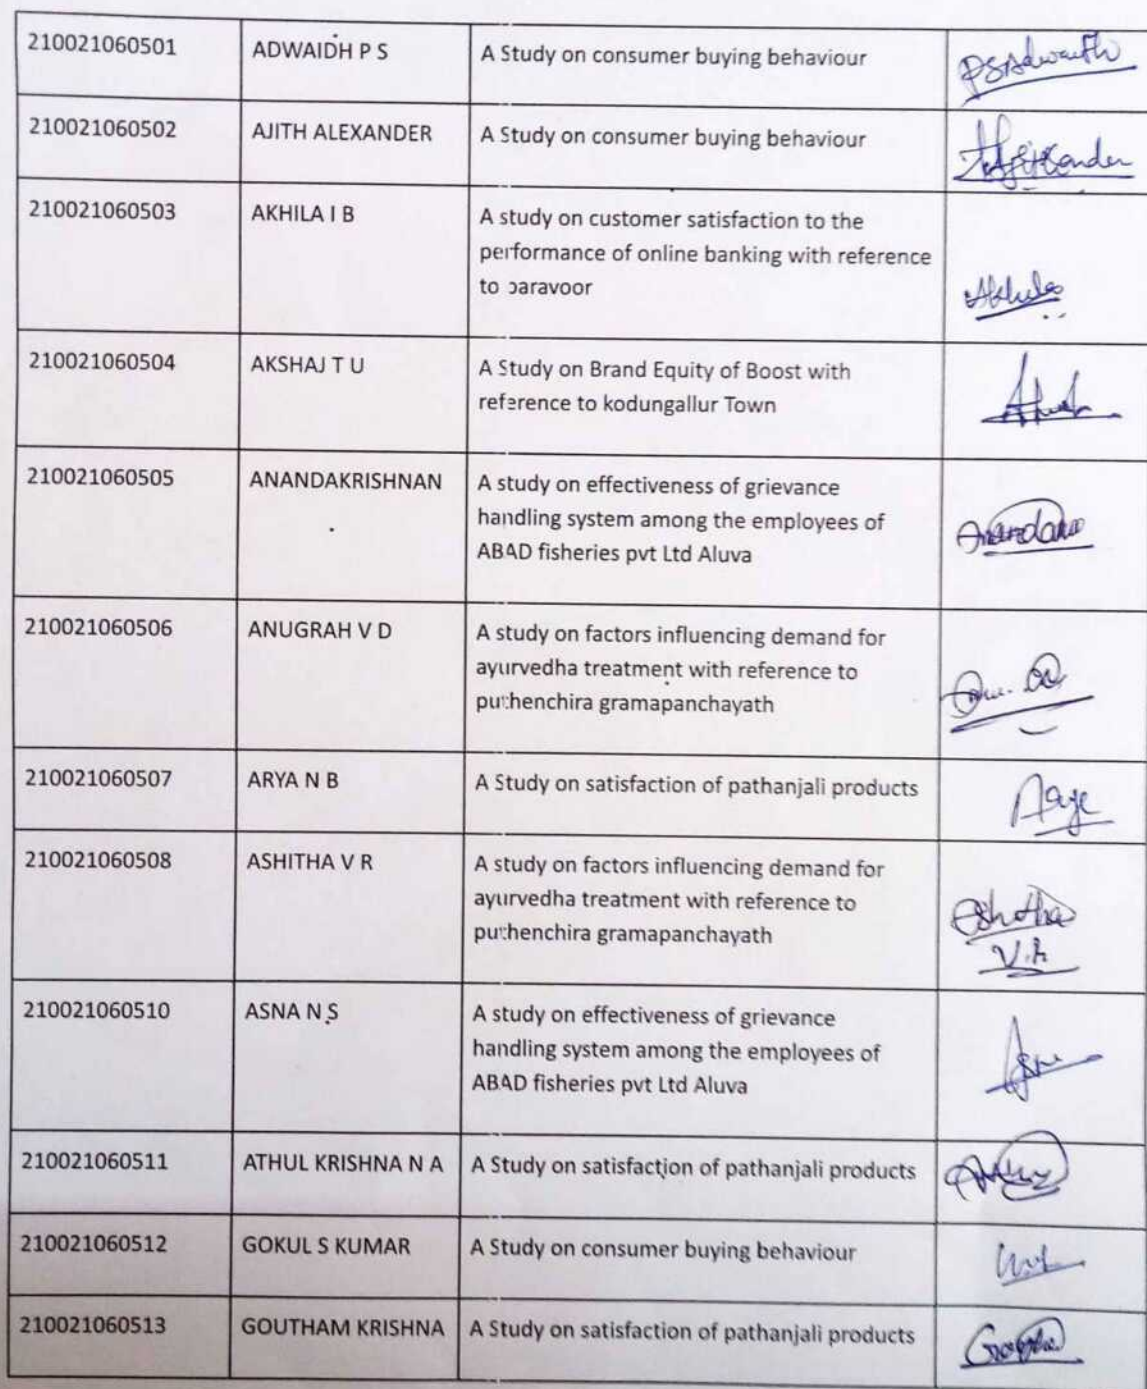 210021060501 ADWAIDH P S A Study on consumer buying behaviour PSAdwaith
210021060502 AJITH ALEXANDER A Study on consumer buying behaviour
210021060503 AKHILA I B A study on customer satisfaction to the
performance of online banking with reference
to paravoor
210021060504 AKSHAJ T U A Study on Brand Equity of Boost with
reference to kodungallur Town
210021060505 ANANDAKRISHNAN A study on effectiveness of grievance
handling system among the employees of
ABAD fisheries pvt Ltd Aluva
210021060506 ANUGRAH V D A study on factors influencing demand for
ayurvedha treatment with reference to
puthenchira gramapanchayath
210021060507 ARYA N B A Study on satisfaction of pathanjali products
210021060508 ASHITHA V R A study on factors influencing demand for
ayurvedha treatment with reference to
puthenchira gramapanchayath
210021060510 ASNA N S A study on effectiveness of grievance
handling system among the employees of
ABAD fisheries pvt Ltd Aluva
210021060511 ATHUL KRISHNA N A A Study on satisfaction of pathanjali products
210021060512 GOKUL S KUMAR A Study on consumer buying behaviour
210021060513 GOUTHAM KRISHNA A Study on satisfaction of pathanjali products